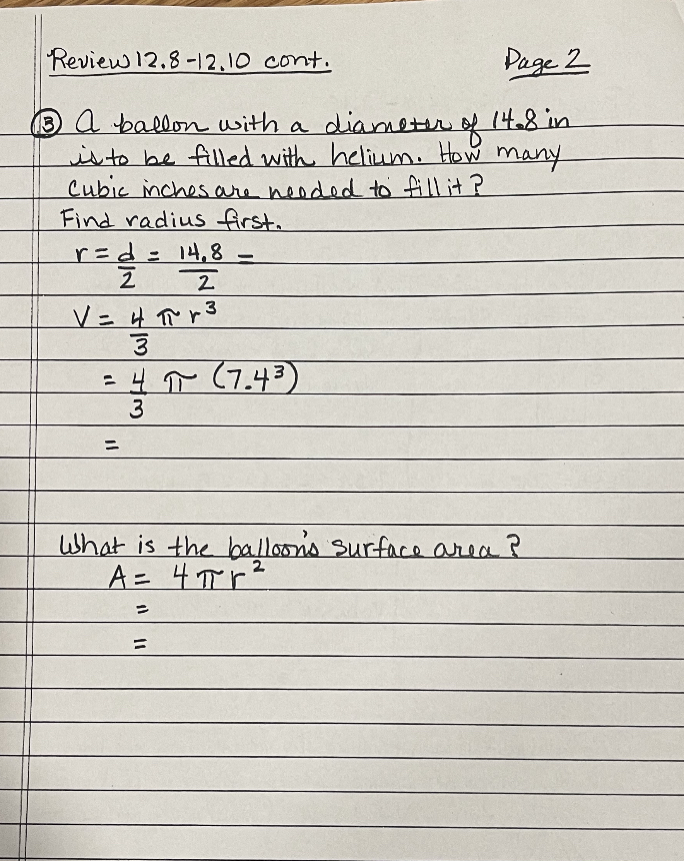 Review 12.8-12.10 cont. Page 2
③ A ballon with a diameter of 14.8 in
is to be filled with helium. How many
cubic inches are needed to fill it?
Find radius first.
r = d/2 = 14.8/2 =
V = 4/3 π r³
= 4/3 π (7.4³)
=
What is the balloon's surface area?
A = 4πr²
=
=